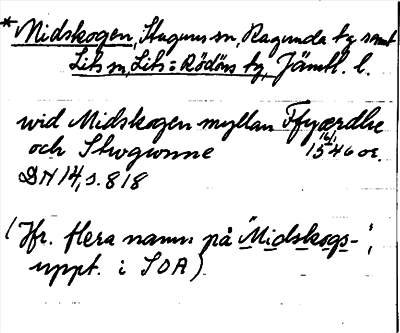 *Midskogen, Stuguns sn, Ragunda tg samt
Lits sn, Lits = Rödöns tg, Jämtl. l.
wid Midskogen myllan Ffyærdhe
och Stwgwnne 16/1 1546 or.
DN 14, s. 818
(Jfr. flera namn på "Midskogs-",
uppt. i SOA).